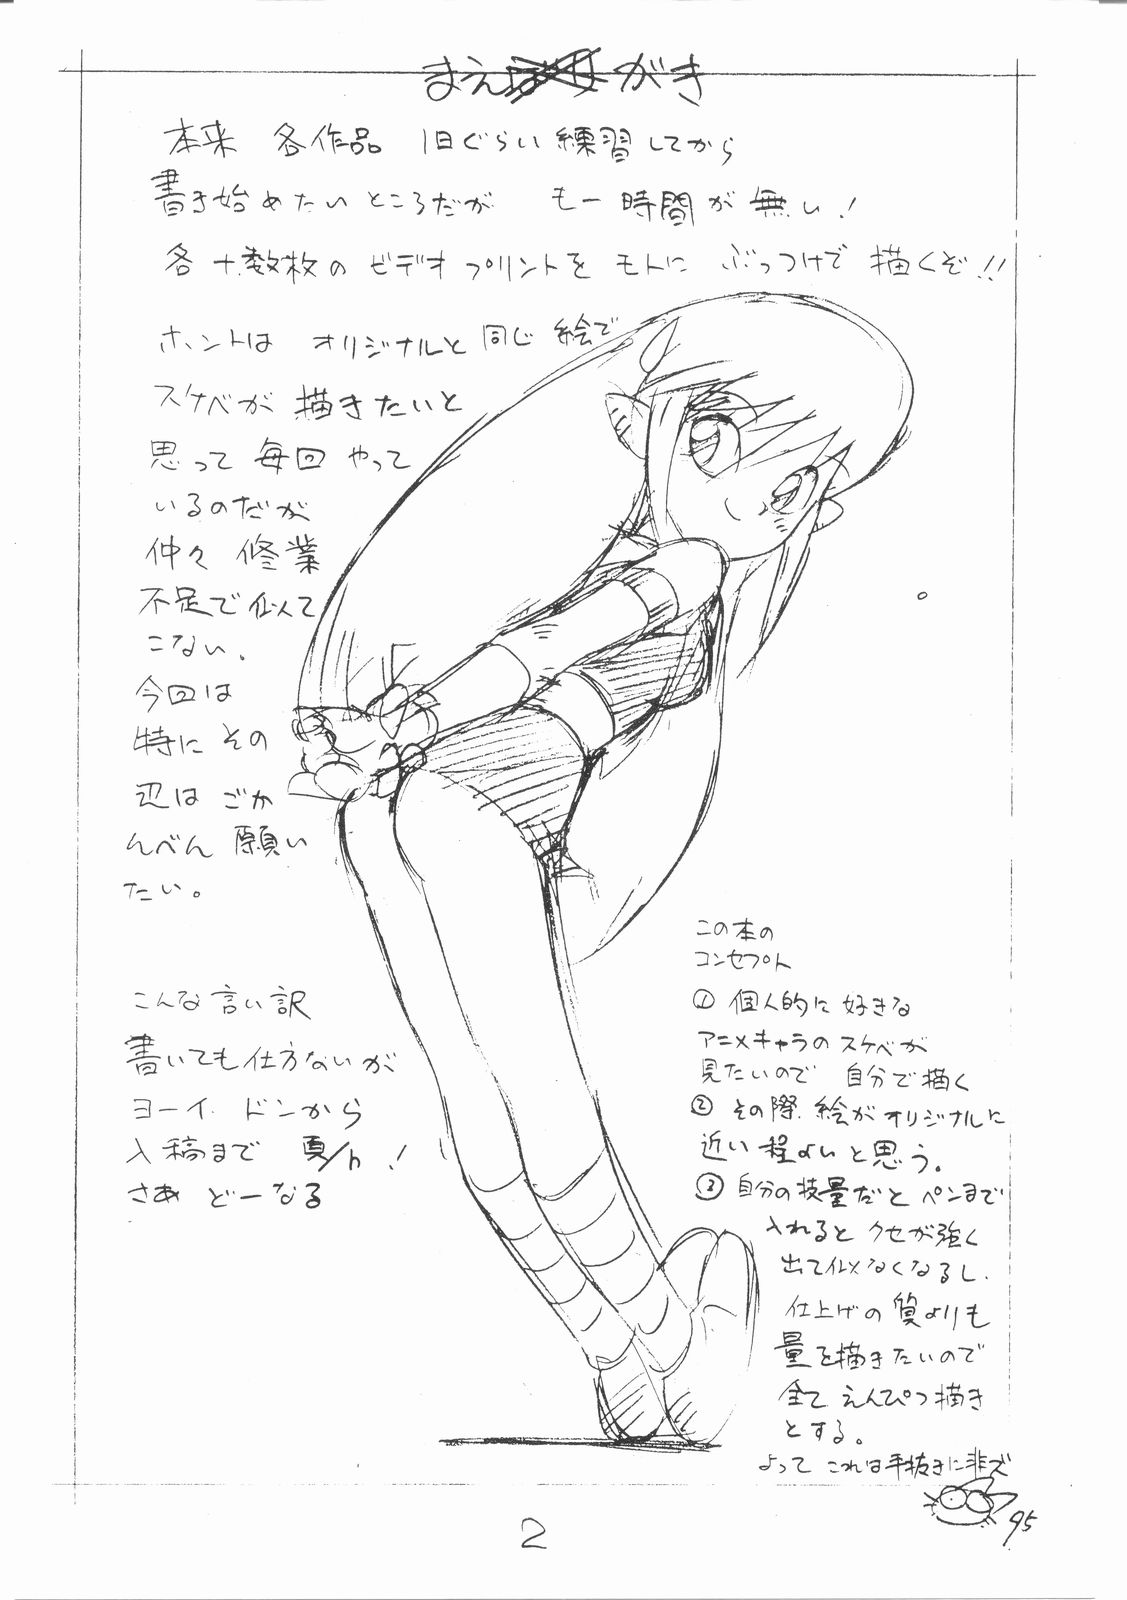 まえがき
本来 各作品 1日ぐらい練習してから
書き始めたいところだが もー時間が無い!
各十数枚のビデオプリントをモトに ぶっつけで描くぞ!!
ホントは オリジナルと同じ絵で
スケベが描きたいと
思って毎回やって
いるのだが
仲々修業
不足で似て
こない.
今回は
特にその
辺はごか
んべん願い
たい。
こんな言い訳
書いても仕方ないが
ヨーイ ドンから
入稿まで !
さあ どーなる
この本の
コンセプト
① 個人的に好きな
アニメキャラのスケベが
見たいので 自分で描く
② その際絵がオリジナルに
近い程よいと思う。
③ 自分の技量だとペンまで
入れるとクセが強く
出て似なくなるし.
仕上げの質よりも
量を描きたいので
全てえんぴつ描き
とする。
よってこれは手抜きに非ズ
95
2